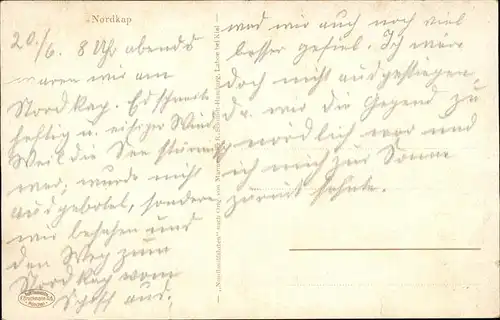 Nordkap
20./6. 8 Uhr abends
waren wir am
Nordkap. Es schneite
heftig u. eisiger Wind
Weil die See stürmisch
war, wurde nicht
ausgebotet, sondern
wir besahen uns
den Weg zum
Nordkap vom
Schiff aus,
was mir auch noch viel
besser gefiel. Ich wäre
doch nicht ausgestiegen,
da mir die Gegend zu
nördlich war und
ich mich zur Sonne
zurück sehnte.
"Nordlandfahrten" nach Orig. von
Laboe bei Kiel